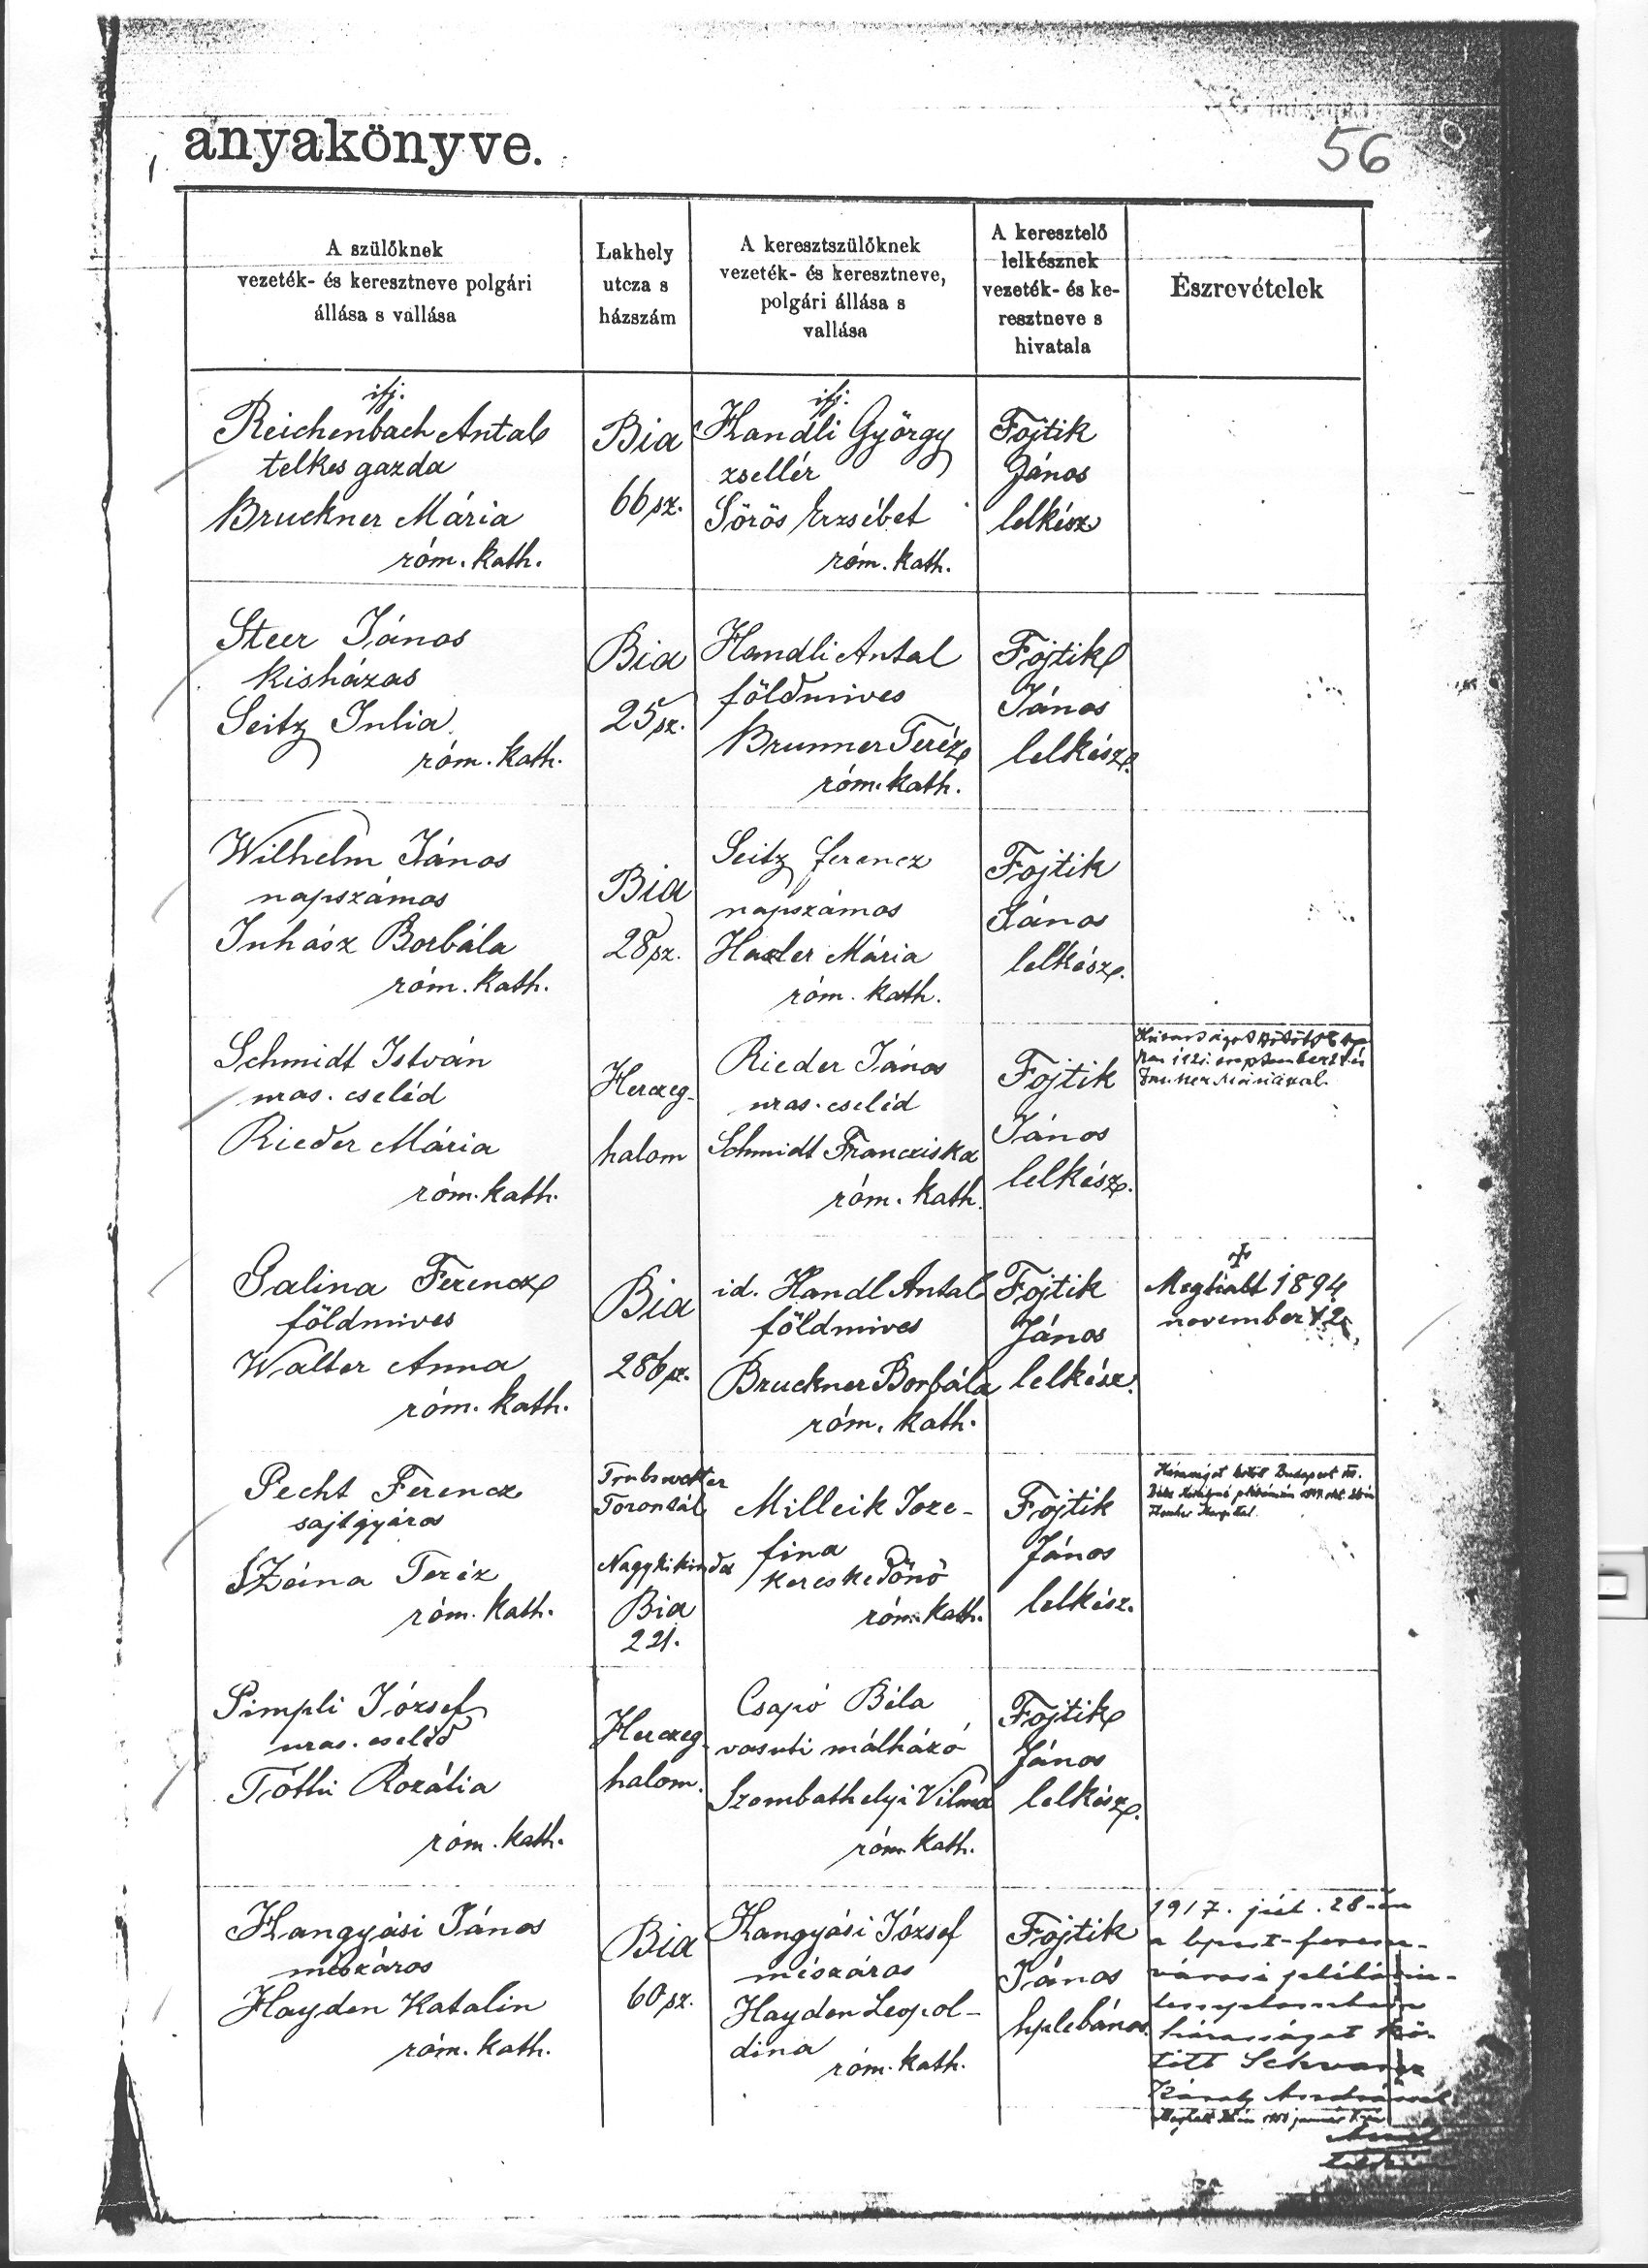 anyakönyve.
56
A szülőknek
vezeték- és keresztneve polgári
állása s vallása
Lakhely
utcza s
házszám
A keresztszülőknek
vezeték- és keresztneve,
polgári állása s
vallása
A keresztelő
lelkésznek
vezeték- és ke-
resztneve s
hivatala
Észrevételek
ifj.
Reichenbach Antal
telkes gazda
Bruckner Mária
róm. kath.
Bia
66 sz.
ifj.
Handli György
zsellér
Sörös Erzsébet
róm. kath.
Fojtik
János
lelkész
Steer János
kisházas
Seitz Julia
róm. kath.
Bia
25 sz.
Handli Antal
földmives
Brunner Teréz
róm. kath.
Fojtik
János
lelkész.
Wilhelm János
napszámos
Juhász Borbála
róm. kath.
Bia
28 sz.
Seitz Ferencz
napszámos
Hasler Mária
róm. kath.
Fojtik
János
lelkész.
Schmidt István
uras. cseléd
Rieder Mária
róm. kath.
Herczeg-
halom
Rieder János
uras. cseléd
Schmidt Francziska
róm. kath.
Fojtik
János
lelkész.
Galina Ferencz
földmives
Walter Anna
róm. kath.
Bia
286 sz.
id. Handl Antal
földmives
Bruckner Borbála
róm. kath.
Fojtik
János
lelkész.
Meghalt 1894
november 12.
Pecht Ferencz
sajtgyáros
Száina Teréz
róm. kath.
Trubswetter
Torontál
Nagykikinda
Bia
221.
Milleik Joze-
fina
kereskedőnő
róm. kath.
Fojtik
János
lelkész.
Házasságot kötött Budapest
Pimpli József
uras. cseléd
Tóthi Rozália
róm. kath.
Herczeg-
halom.
Csapó Béla
vasuti málházó
Szombathelyi Vilma
róm. kath.
Fojtik
János
lelkész.
Hangyási János
mészáros
Hayden Katalin
róm. kath.
Bia
60 sz.
Hangyási József
mészáros
Hayden Leopol-
dina
róm. kath.
Fojtik
János
hplebános.
1917. júl. 28-án
a bpest-ferencz-
városi plébánia-
templomban
házasságot kö-
tött Schwarz